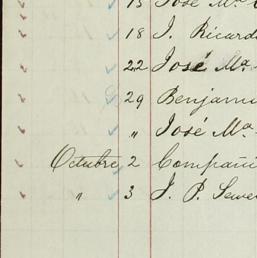 15 José Ma.
18 J. Ricard
22 José Ma.
29 Benjami
" José Ma.
Octubre 2 Compañi
" 3 J. P. Sewe